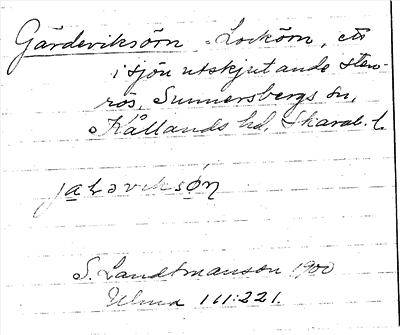 Gärdeviksörn - Lockörn, ett
i sjön utskjutande sten-
rös, Sunnersbergs sn,
Kållands hd, Skarab. l.
S. Landtmanson 1900
Ulma 111:221.